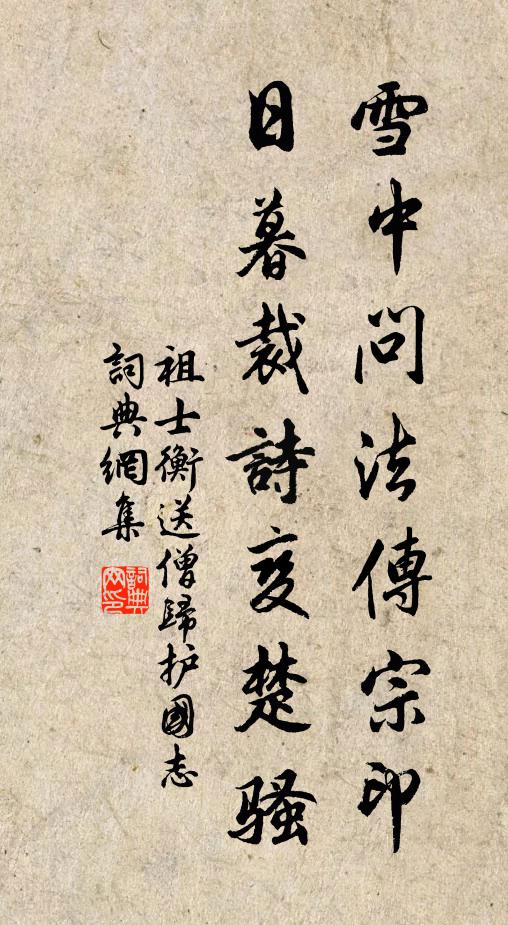 雪中问法傳宗印
日暮裁詩变楚骚
祖士衡送僧歸护國志
詞典網集
詞典网印